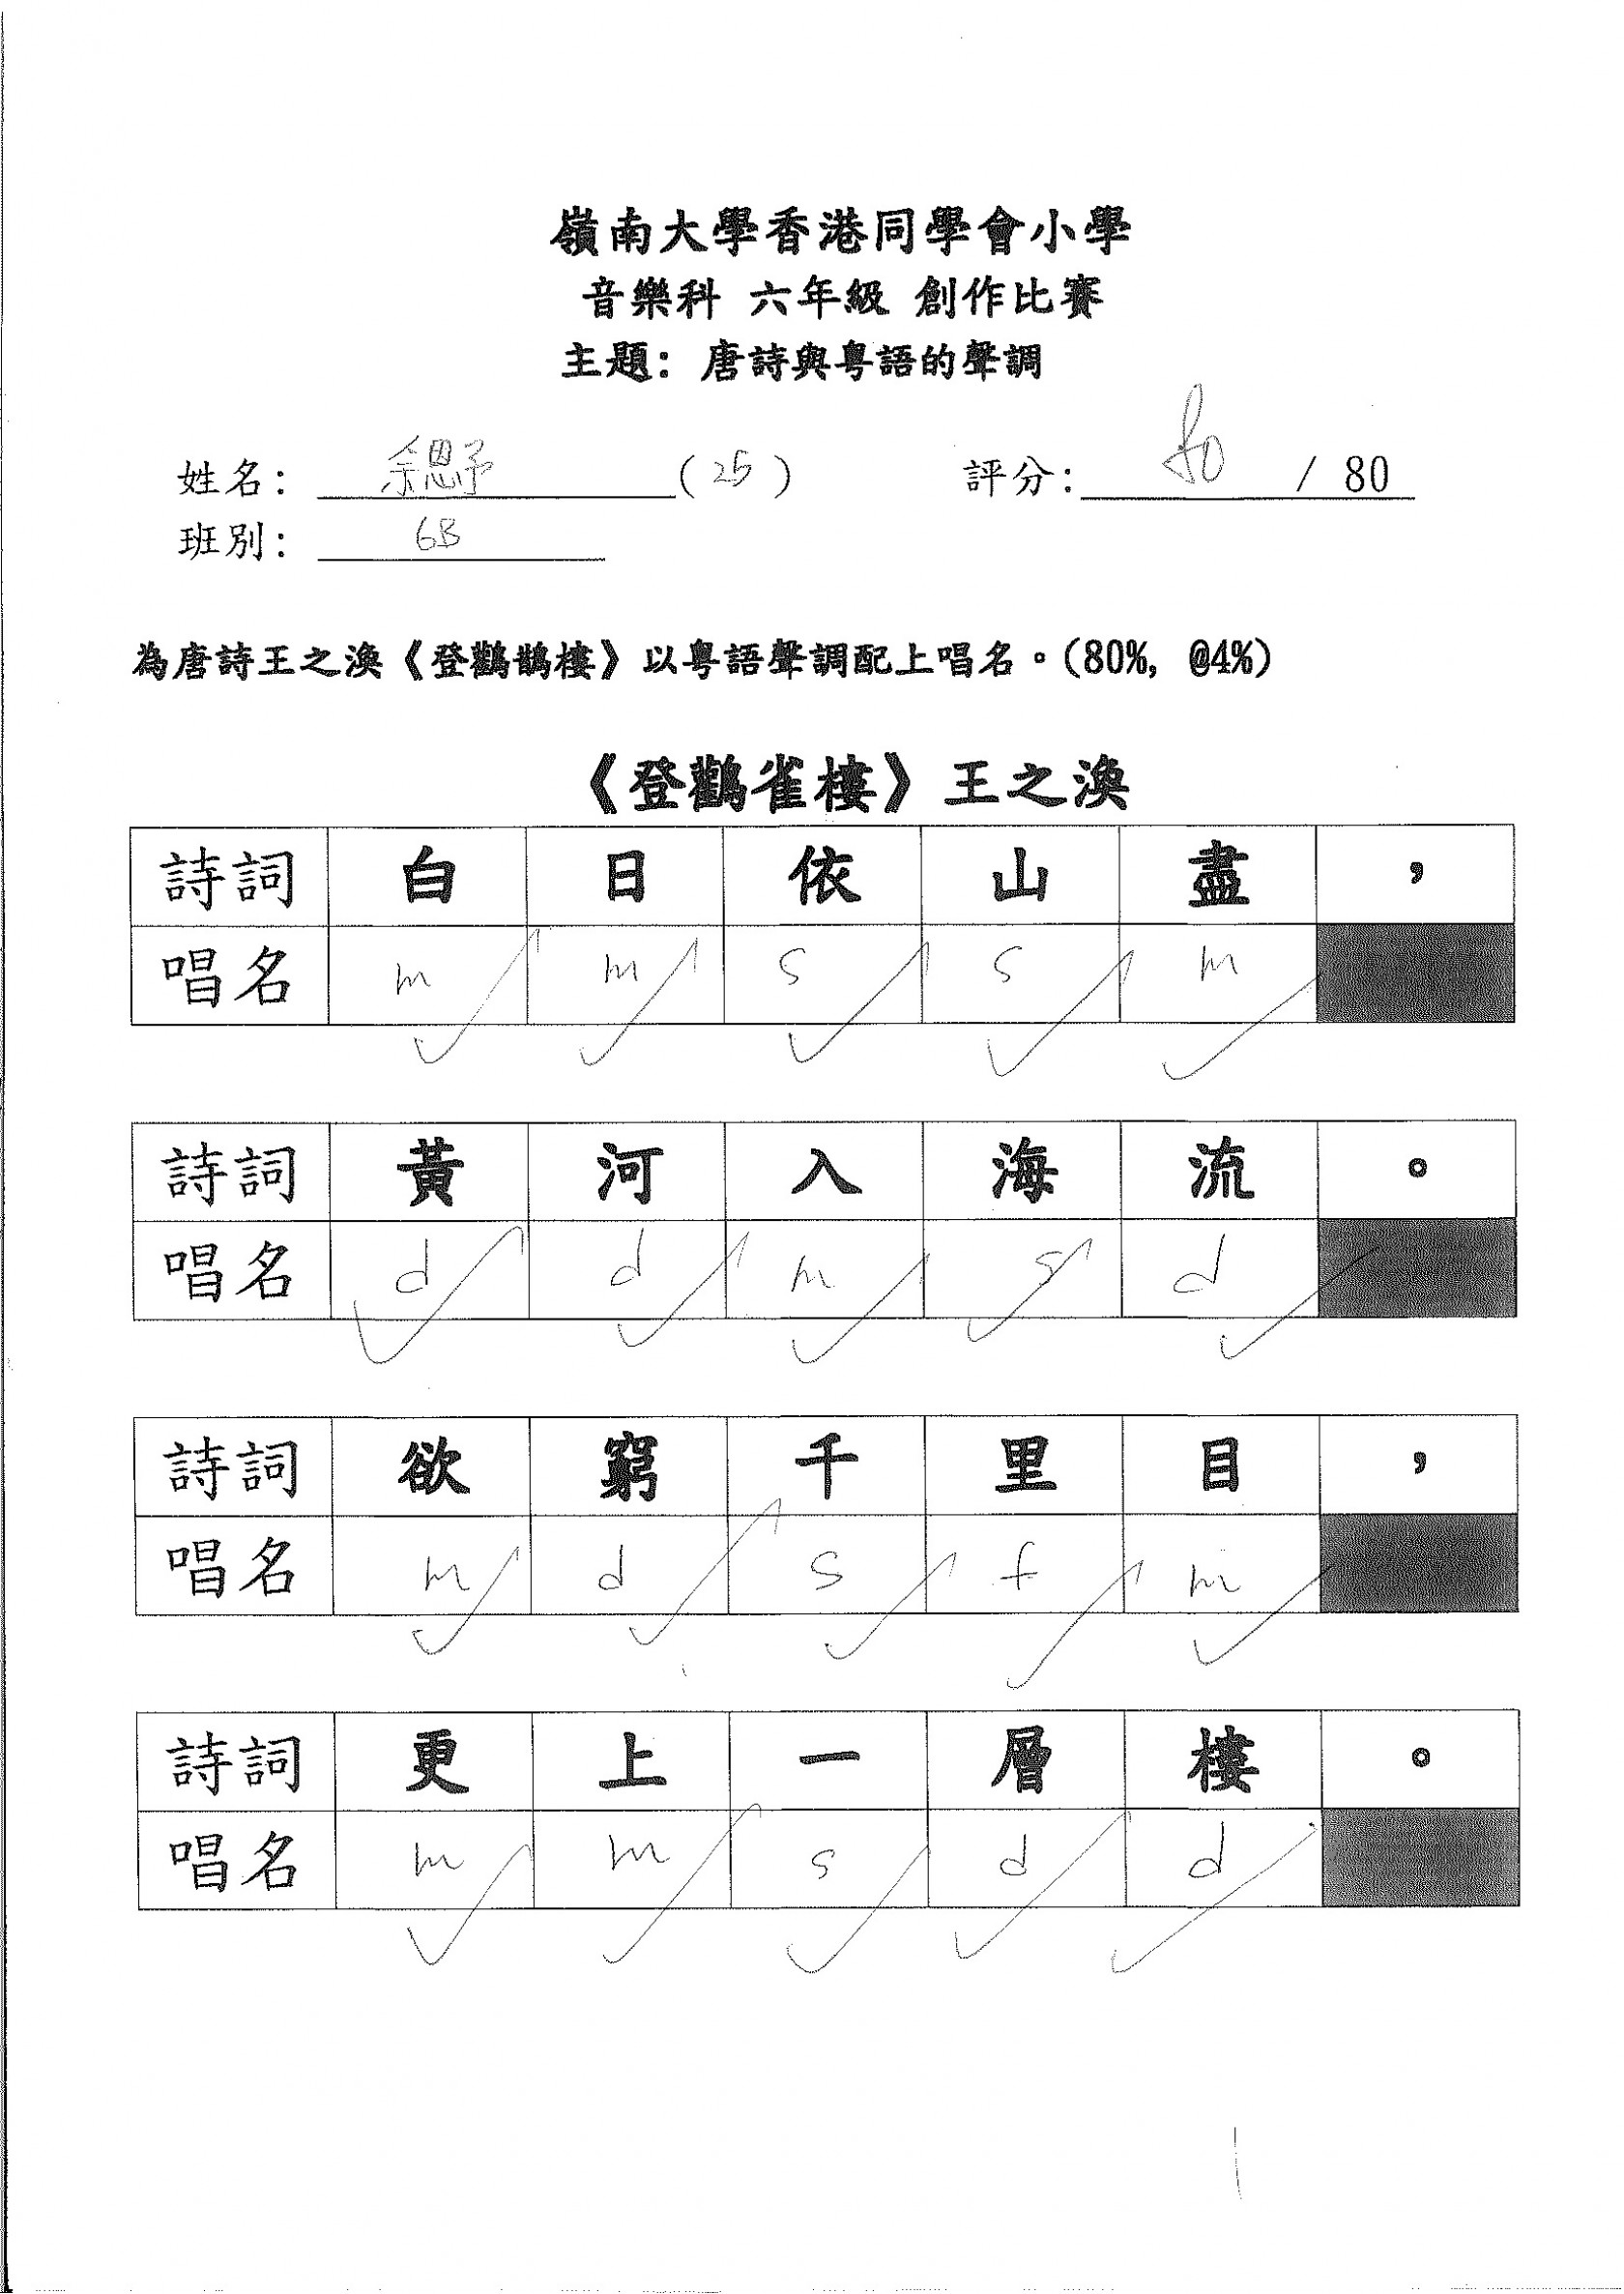 嶺南大學香港同學會小學
音樂科 六年級 創作比賽
主題：唐詩與粵語的聲調
姓名： 余恩予 (25) 評分： 80 / 80
班別： 6B
為唐詩王之渙《登鸛鵲樓》以粵語聲調配上唱名。(80%, @4%)
《登鸛雀樓》王之渙
詩詞 白 日 依 山 盡 ，
唱名 m m s s m
詩詞 黃 河 入 海 流 。
唱名 d d m s d
詩詞 欲 窮 千 里 目 ，
唱名 m d s f m
詩詞 更 上 一 層 樓 。
唱名 m m s d d